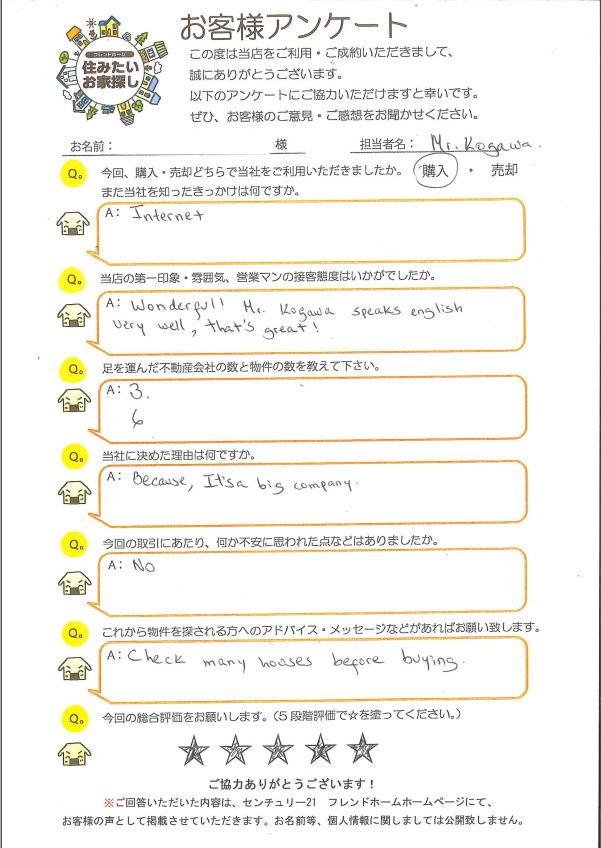 お客様アンケート
フレンドホーム
住みたい
お家探し
この度は当店をご利用・ご成約いただきまして、
誠にありがとうございます。
以下のアンケートにご協力いただけますと幸いです。
ぜひ、お客様のご意見・ご感想をお聞かせください。
お名前： 様 担当者名： Mr. Kogawa.
Q。 今回、購入・売却どちらで当社をご利用いただきましたか。 購入 ・ 売却
また当社を知ったきっかけは何ですか。
A： Internet
Q。 当店の第一印象・雰囲気、営業マンの接客態度はいかがでしたか。
A： Wonderful! Mr. Kogawa speaks english
very well, that's great!
Q。 足を運んだ不動産会社の数と物件の数を教えて下さい。
A： 3.
6
Q。 当社に決めた理由は何ですか。
A： Because, It's a big company.
Q。 今回の取引にあたり、何か不安に思われた点などはありましたか。
A： No
Q。 これから物件を探される方へのアドバイス・メッセージなどがあればお願い致します。
A： Check many houses before buying.
Q。 今回の総合評価をお願いします。（5段階評価で☆を塗ってください。）
ご協力ありがとうございます！
※ご回答いただいた内容は、センチュリー21 フレンドホームホームページにて、
お客様の声として掲載させていただきます。お名前等、個人情報に関しましては公開致しません。